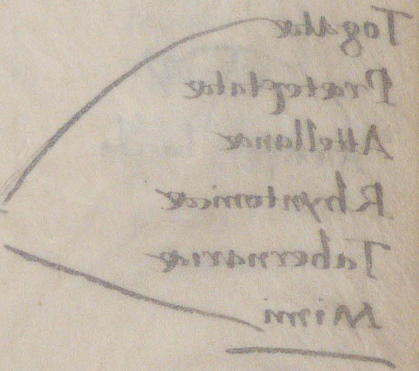 Togatæ
Prætextatæ
Attellanæ
Rhyntonicæ
Tabernariæ
Mimi